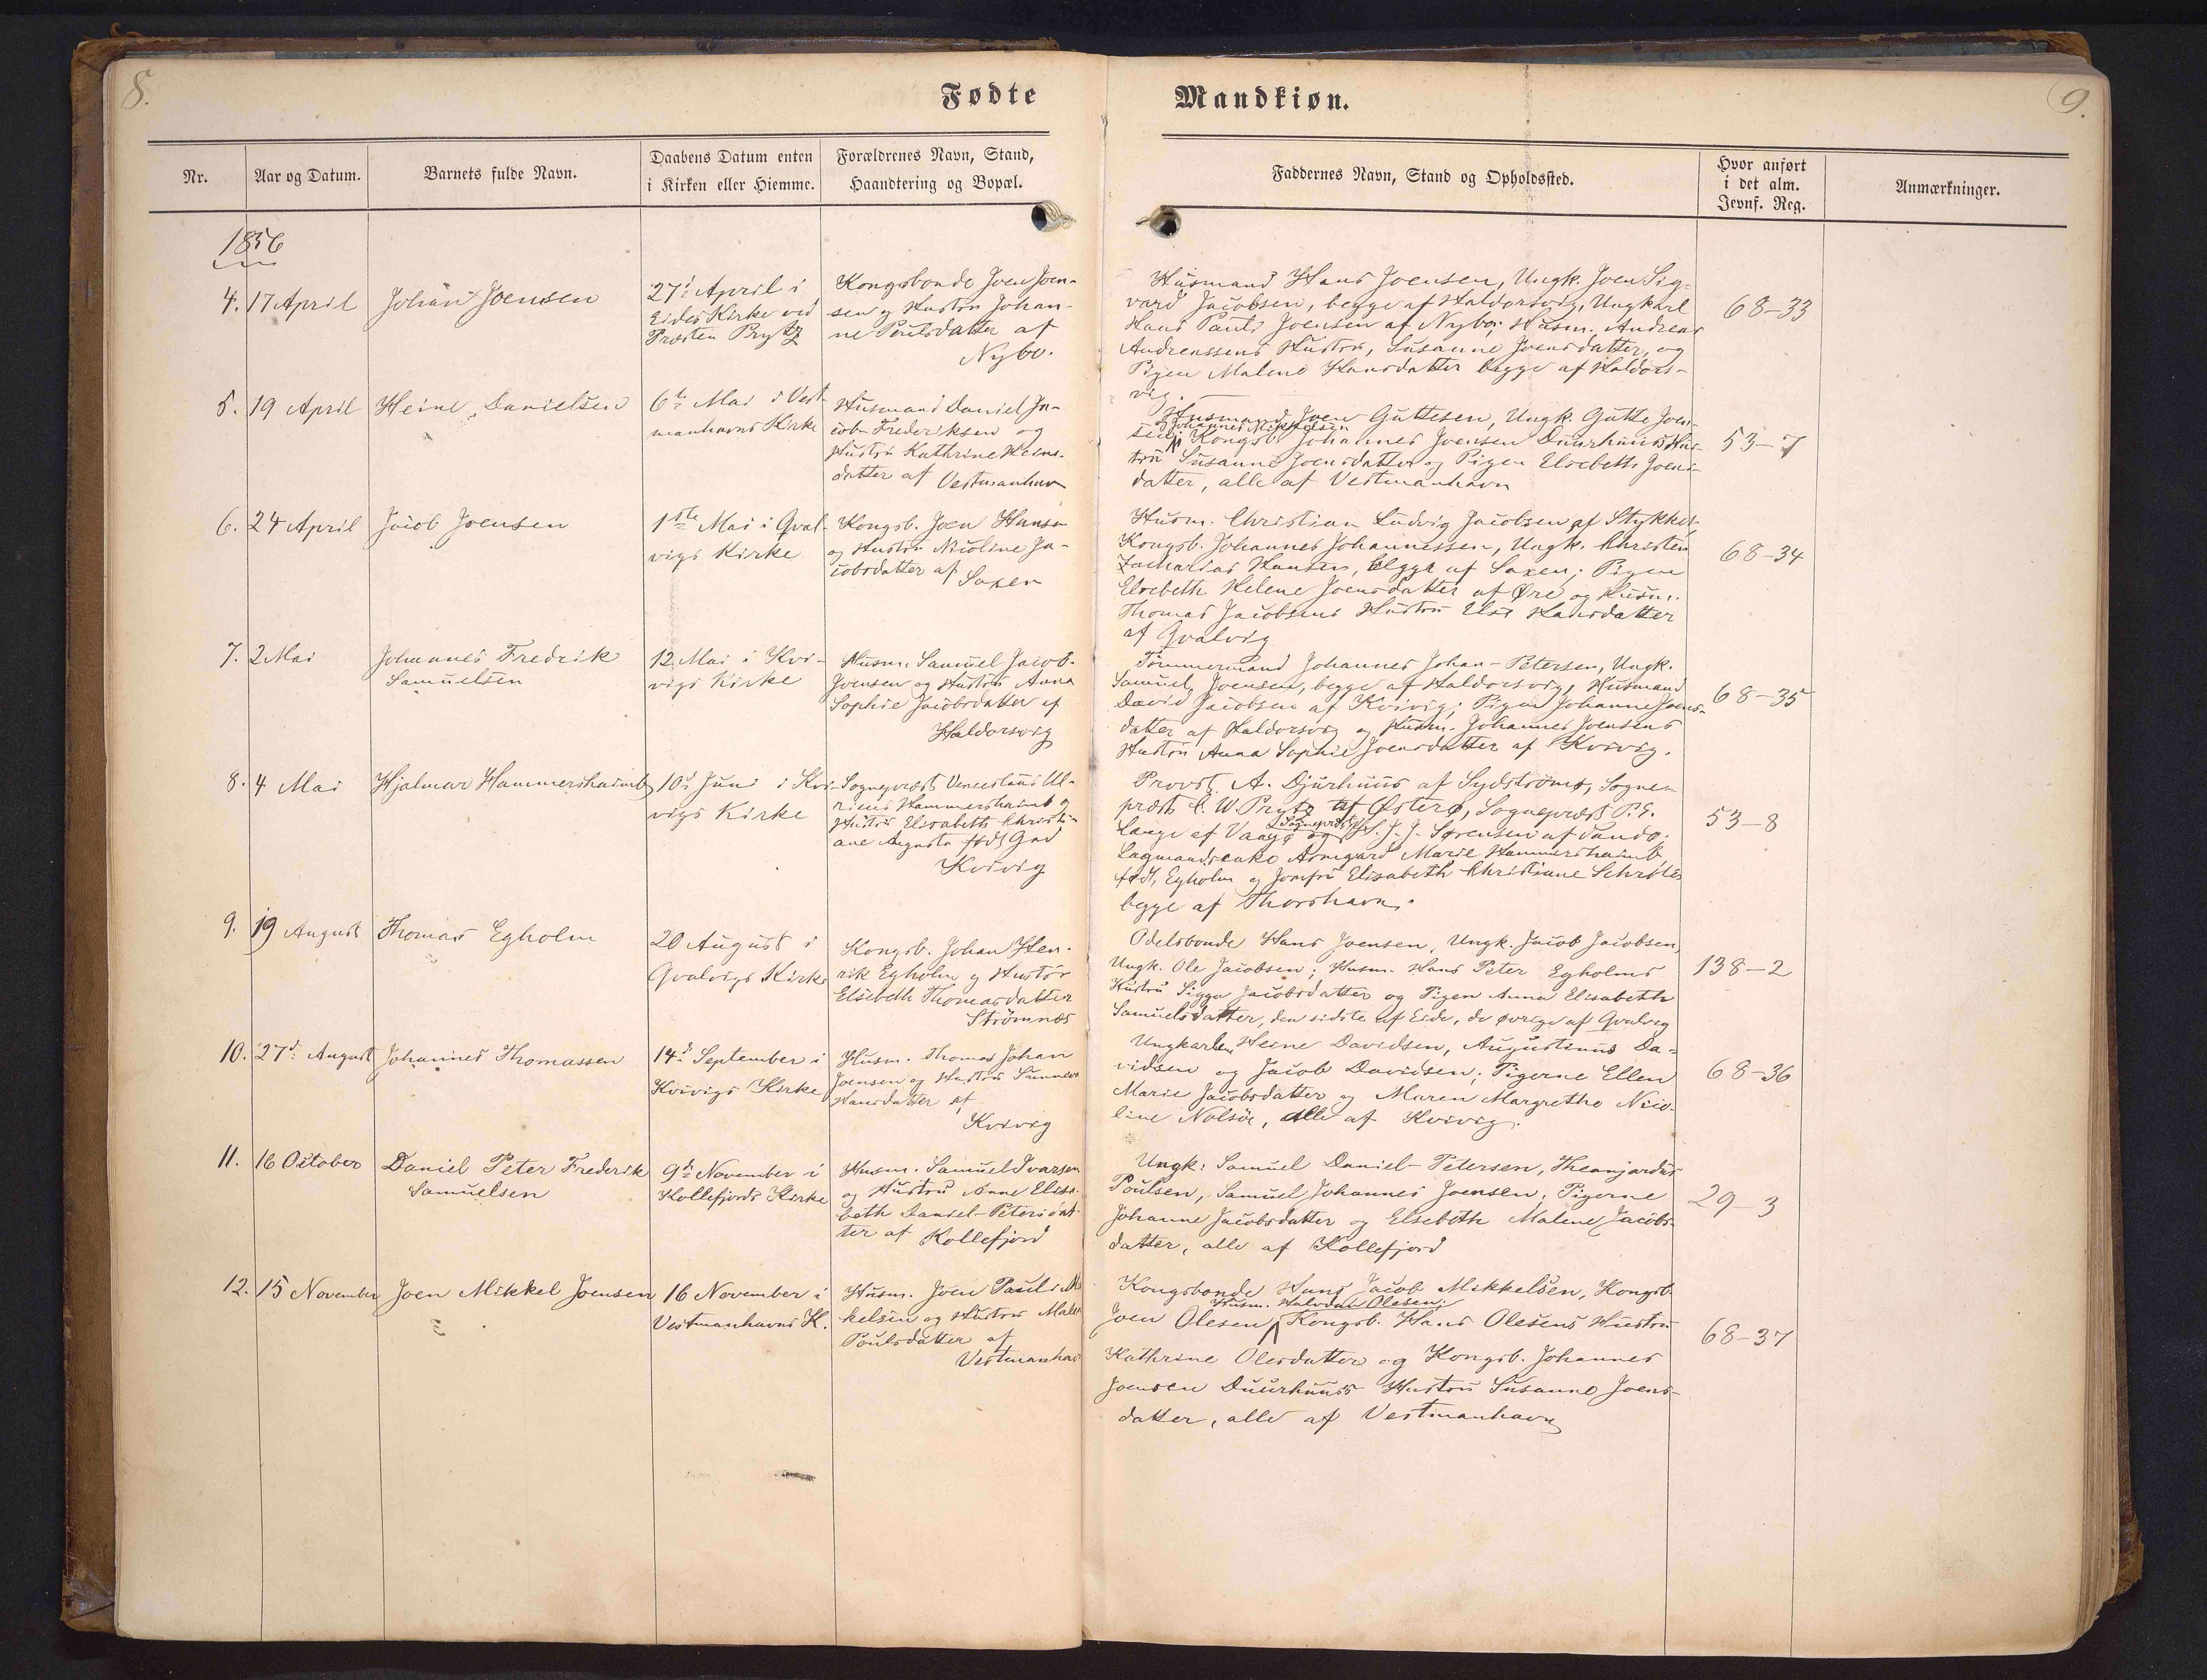 8.
Fødte
Mandkiøn.
9.
Nr.
Aar og Datum.
Barnets fulde Navn.
Daabens Datum enten
i Kirken eller Hiemme.
Forældrenes Navn, Stand,
Haandtering og Bopæl.
Faddernes Navn, Stand og Opholdssted.
Hvor anført
i det alm.
Jevnf. Reg.
Anmærkninger.
1856
4.
17 April
Johan Joensen
27de April i
Eides Kirke ved
Præsten Prytz
Kongsbonde Joen Joen-
sen og Hustru Johan-
ne Poulsdatter af
Nybo.
Husmand Hans Joensen, Ungk. Joen Sig-
vard Jacobsen, begge af Haldorsvig, Ungkarl
Hans Pauli Joensen af Nybo; Husm. Andreas
Andreassens Hustru, Susanne Joensdatter, og
Pigen Malene Hansdatter begge af Haldors-
vig.
68-33
5.
19 April
Heine Danielsen
6te Mai i Vest-
manhavns Kirke
Husmand Daniel Ja-
cob Frederiksen og
Hustru Kathrine Heins-
datter af Vestmanhavn
Husmand Joen Guttesen, Ungk. Gutte Joen-
sen, Johannes Mikkelsen
Kongsb. Johannes Joensen Duurhuus's Hus-
tru Susanne Joensdatter og Pigen Elsebeth Joens-
datter, alle af Vestmanhavn
53-7
6.
24 April
Jacob Joensen
1ste Mai i Qval-
vigs Kirke
Kongsb. Joen Hansen
og Hustru Nicoline Ja-
cobsdatter af
Saxen
Husm. Christian Ludvig Jacobsen af Stykket,
Kongsb. Johannes Johannessen, Ungk. Christen
Zacharias Hansen, begge af Saxen; Pigen
Elsebeth Helene Joensdatter af Øre og Husm.
Thomas Jacobsens Hustru Else Hansdatter
af Qvalvig
68-34
7.
2 Mai
Johannes Fredrik
Samuelsen
12 Mai i Kvi-
vigs Kirke
Husm. Samuel Jacob
Joensen og Hustru Anna
Sophie Jacobsdatter af
Haldorsvig
Tømmermand Johannes Johan-Petersen, Ungk.
Samuel Joensen, begge af Haldorsvig, Husmand
David Jacobsen af Kvivig; Pigen Johanne Joens-
datter af Haldorsvig og Husm. Johannes Joensens
Hustru Anna Sophie Joensdatter af Kvivig.
68-35
8.
4 Mai
Hjalmar Hammershaimb
10de Juni i Kvi-
vigs Kirke
Sognepræst Venceslaus Ul-
ricus Hammershaimb og
Hustru Elisabeth Christi-
ane Augusta født Gad
Kvivig
Provst A. Djurhuus af Sydstrømø, Sogne-
præst C. W. Prytz af Østerø, Sognepræst P. E.
Lange af Vaagø og Sognepræst S. J. J. Sørensen af Sandø;
Lagmandsenke Armgard Marie Hammershaimb
født Egholm og Jomfru Elisabeth Christiane Schrøter
begge af Thorshavn.
53-8
9.
19 August
Thomas Egholm
20 August i
Qvalvigs Kirke
Kongsb. Johan Hen-
rik Egholm og Hustru
Elsebeth Thomasdatter
Strømnæs
Odelsbonde Hans Joensen, Ungk. Jacob Jacobsen,
Ungk. Ole Jacobsen; Husm. Hans Peter Egholms
Hustru Sigga Jacobsdatter og Pigen Anna Elisabeth
Samuelsdatter, den sidste af Eide, de øvrige af Qvalvig
138-2
10.
27de August
Johannes Thomassen
14de September i
Kvivigs Kirke
Husm. Thomas Johan
Joensen og Hustru Sunneva
Hansdatter af
Kvivig
Ungkarlene Heine Davidsen, Augustinus Da-
vidsen og Jacob Davidsen; Pigerne Ellen
Marie Jacobsdatter og Maren Margrethe Nico-
line Nolsøe, alle af Kvivig.
68-36
11.
16 October
Daniel Peter Frederik
Samuelsen
9de November i
Kollefjords Kirke
Husm. Samuel Ivarsen
og Hustru Anne Elisa-
beth Daniel-Petersdat-
ter af Kollefjord
Ungk. Samuel Daniel-Petersen, Theanjardus
Poulsen, Samuel Johannes Joensen; Pigerne
Johanne Jacobsdatter og Elsebeth Malene Jacobs-
datter, alle af Kollefjord
29-3
12.
15 November
Joen Mikkel Joensen
16 November i
Vestmanhavns K.
Husm. Joen Pauli Mi-
kelsen og Hustru Malene
Poulsdatter af
Vestmanhavn
Kongsbonde Hans Jacob Mikkelsen, Kongsb.
Joen Olesen, Husm. Halvdan Olesen; Kongsb. Hans Olesens Hustru
Kathrine Olesdatter og Kongsb. Johannes
Joensen Duurhuus's Hustru Susanne Joens-
datter, alle af Vestmanhavn
68-37